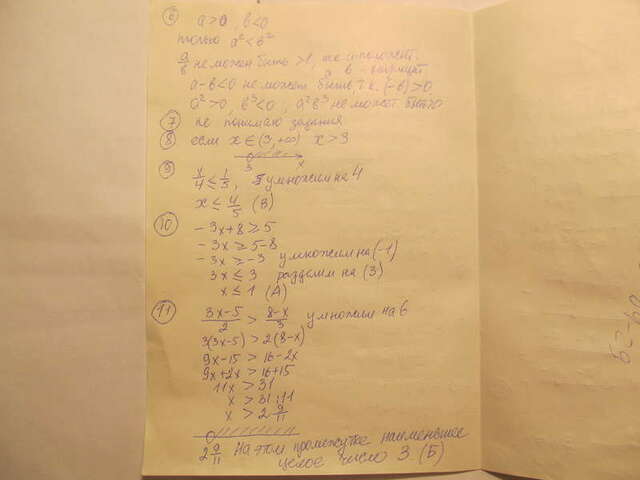 6 a>0, b<0
только a²<b²
a/b не может быть >1, т.к. a-полож.,
а b - отрицат
a-b<0 не может быть, т.к. (-b)>0
a²>0, b³<0; a²b³ не может быть >0
7 не понимаю задания
8 если x∈(3,+∞) x>3
3 x
9 x/4 ≤ 1/5, умножим на 4
x ≤ 4/5 (В)
10 -3x+8≥5
-3x≥5-8
-3x≥-3 умножим на (-1)
3x≤3 разделим на (3)
x≤1 (А)
11 (3x-5)/2 > (8-x)/3 умножим на 6
3(3x-5)>2(8-x)
9x-15>16-2x
9x+2x>16+15
11x>31
x>31:11
x>2 9/11
2 9/11 На этом промежутке наименьшее
целое число 3. (Б)